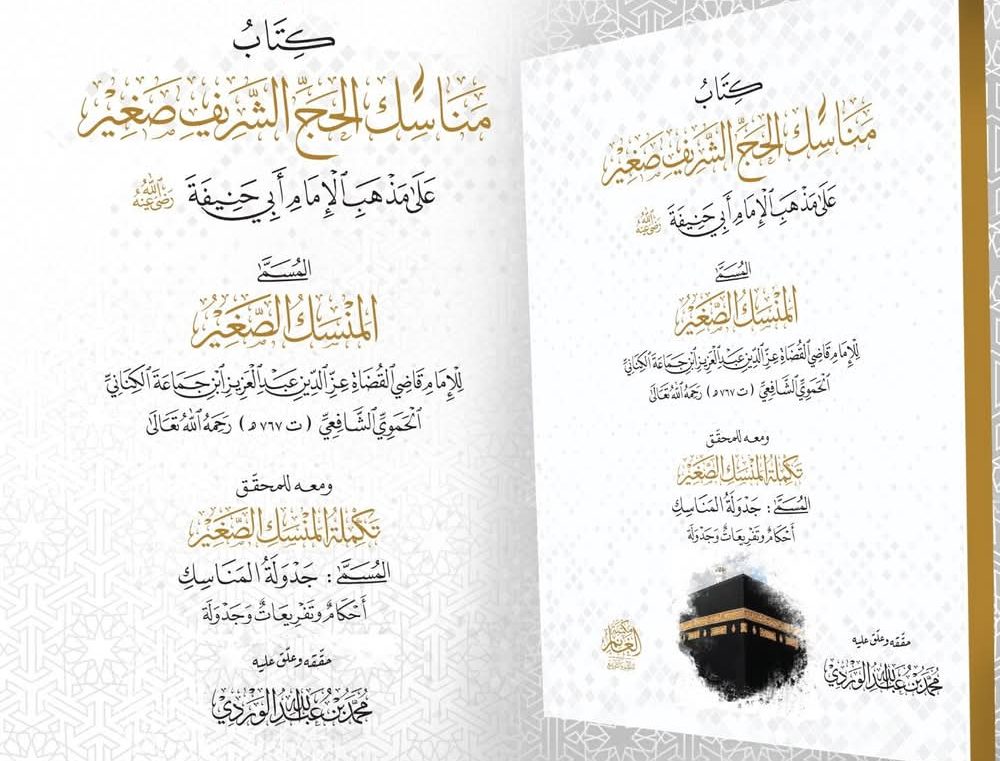 كِتَابُ
مَنَاسِكِ الحَجِّ الشَّرِيفِ صَغِيْر
عَلَى مَذْهَبِ الْإِمَامِ أَبِي حَنِيفَةَ رَضِيَ اللهُ عَنْهُ
المُسَمَّى
المَنْسَكُ الصَّغِيْرُ
لِلْإِمَامِ قَاضِي الْقُضَاةِ عِزِّ الدِّينِ عَبْدِ الْعَزِيزِ ابْنِ جَمَاعَةَ الْكِنَانِيِّ
الْحَمَوِيِّ الشَّافِعِيِّ (ت ٧٦٧ هـ) رَحِمَهُ اللهُ تَعَالَى
ومعه للمحقّق
تَكْمِلَةُ المَنْسَكِ الصَّغِيْرِ
المُسَمَّى: جَدْوَلَةُ المَنَاسِكِ
أَحْكَامٌ وَتَفْرِيعَاتٌ وَجَدْوَلَة
حقّقه وعلّق عليه
مُحَمَّدُ بْنُ عَبْدِ اللهِ الوَرْدِيّ
كِتَابُ
مَنَاسِكِ الحَجِّ الشَّرِيفِ صَغِيْر
عَلَى مَذْهَبِ الْإِمَامِ أَبِي حَنِيفَةَ رَضِيَ اللهُ عَنْهُ
المُسَمَّى
المَنْسَكُ الصَّغِيْرُ
لِلْإِمَامِ قَاضِي الْقُضَاةِ عِزِّ الدِّينِ عَبْدِ الْعَزِيزِ ابْنِ جَمَاعَةَ الْكِنَانِيِّ
الْحَمَوِيِّ الشَّافِعِيِّ (ت ٧٦٧ هـ) رَحِمَهُ اللهُ تَعَالَى
ومعه للمحقّق
تَكْمِلَةُ المَنْسَكِ الصَّغِيْرِ
المُسَمَّى: جَدْوَلَةُ المَنَاسِكِ
أَحْكَامٌ وَتَفْرِيعَاتٌ وَجَدْوَلَة
حقّقه وعلّق عليه
مُحَمَّدُ بْنُ عَبْدِ اللهِ الوَرْدِيّ
مكتبة